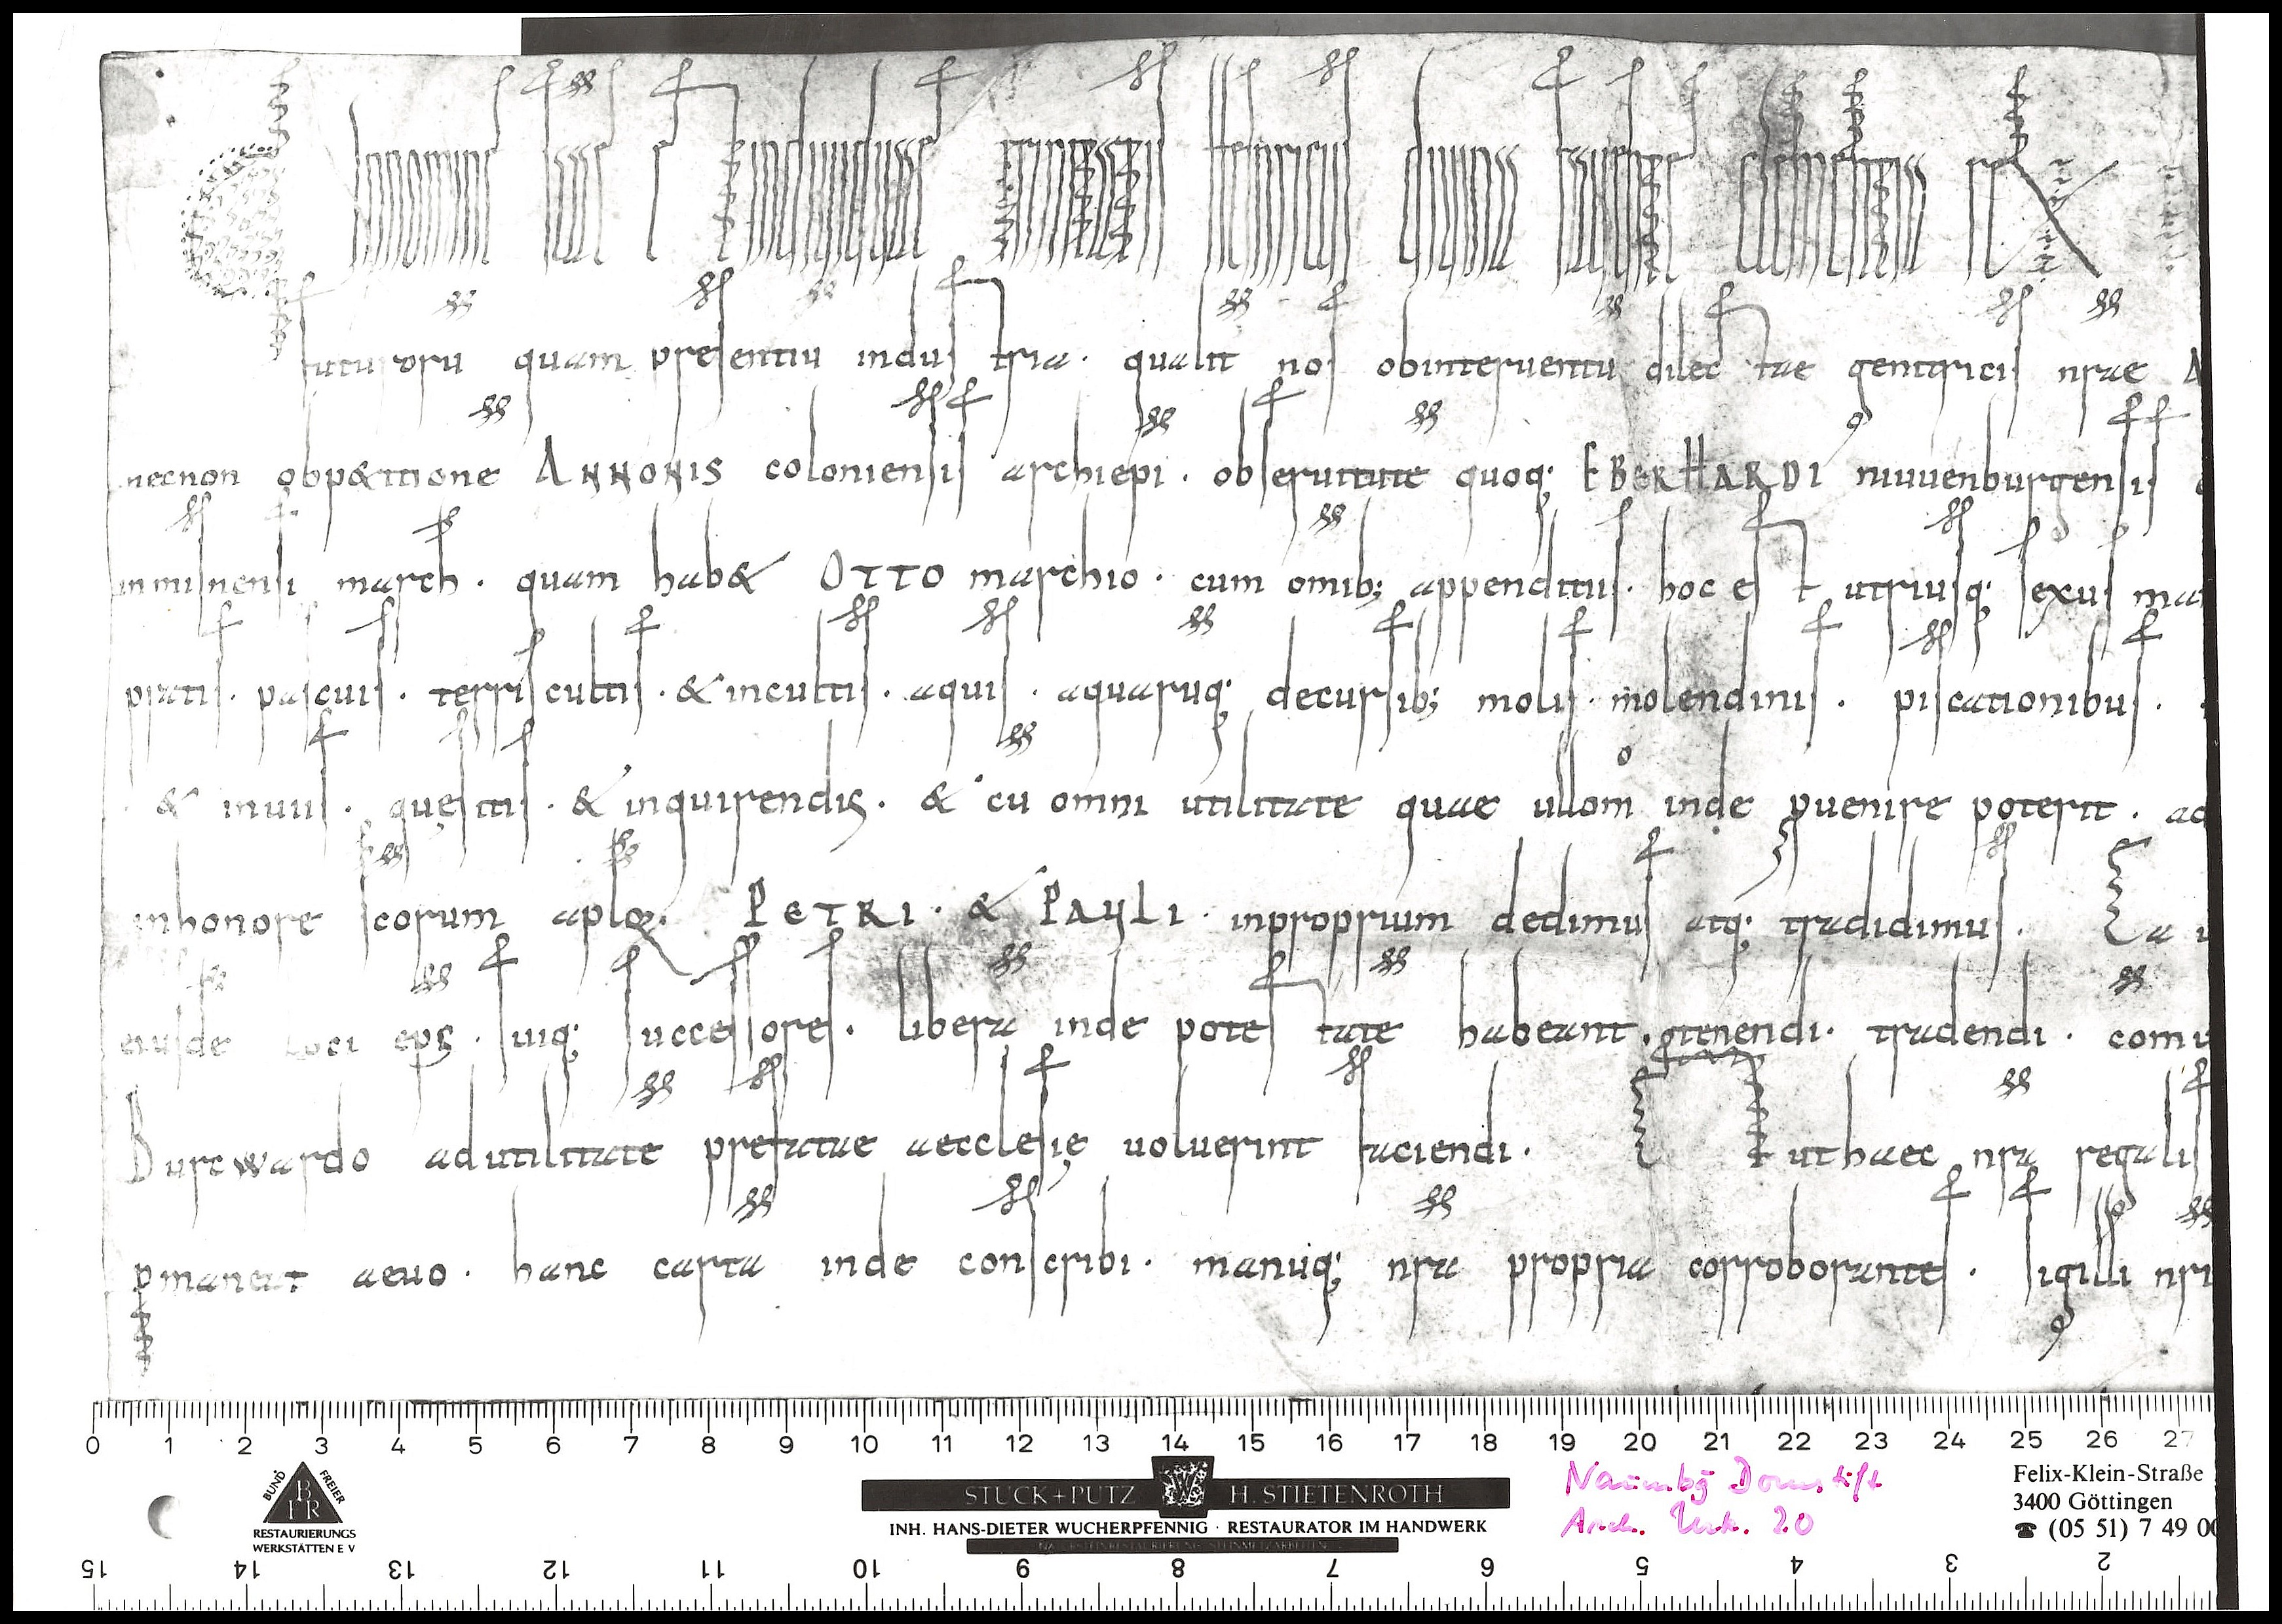 In nomine sanctae et individuae trinitatis Heinricus divina favente clementia rex
futurorū quam presentiū industria · qualit nos obinterventu dilectae genitricis nrae A
necnon obp&itione ANNONIS coloniensis archiepi · observitiūe quoq; EBERHARDI niuuenburgensis
inmisnensi march · quam hab& OTTO marchio · cum omib; appenditiis · hoc est utriusq; sexus
pratis · pascuis · terris cultis · & incultis · aquis · aquarūq; decursib; molis · molendinis · piscationibus ·
& inviis · quęsitis · & inquirendis · & cū omni utilitate quae ullom inde pvenire poterit · ad
inhonore scorum aplor̄ PETRI · & PAULI · inproprium dedimus atq; tradidimus · Ea
eiusdē loci eps · suiq; successores · liberā inde potestatē habeant · tenendi · tradendi · comu
Burcwardo adutilitatē prefatae aecclesię voluerint faciendi · Et ut haec nra regalis
pmaneat aevo · hanc cartā inde conscribi · manuq; nra propria corroborantes · sigilli nri
0 1 2 3 4 5 6 7 8 9 10 11 12 13 14 15 16 17 18 19 20 21 22 23 24 25 26 27
BUND FREIER
BFR
RESTAURIERUNGS
WERKSTÄTTEN E V
STUCK+PUTZ W H. STIETENROTH
INH. HANS-DIETER WUCHERPFENNIG · RESTAURATOR IM HANDWERK
NATURSTEINRESTAURIERUNG STEINMETZARBEITEN
Naumbg Domstift
Arch. Urk. 20
Felix-Klein-Straße
3400 Göttingen
☎ (05 51) 7 49 00
15 14 13 12 11 10 9 8 7 6 5 4 3 2